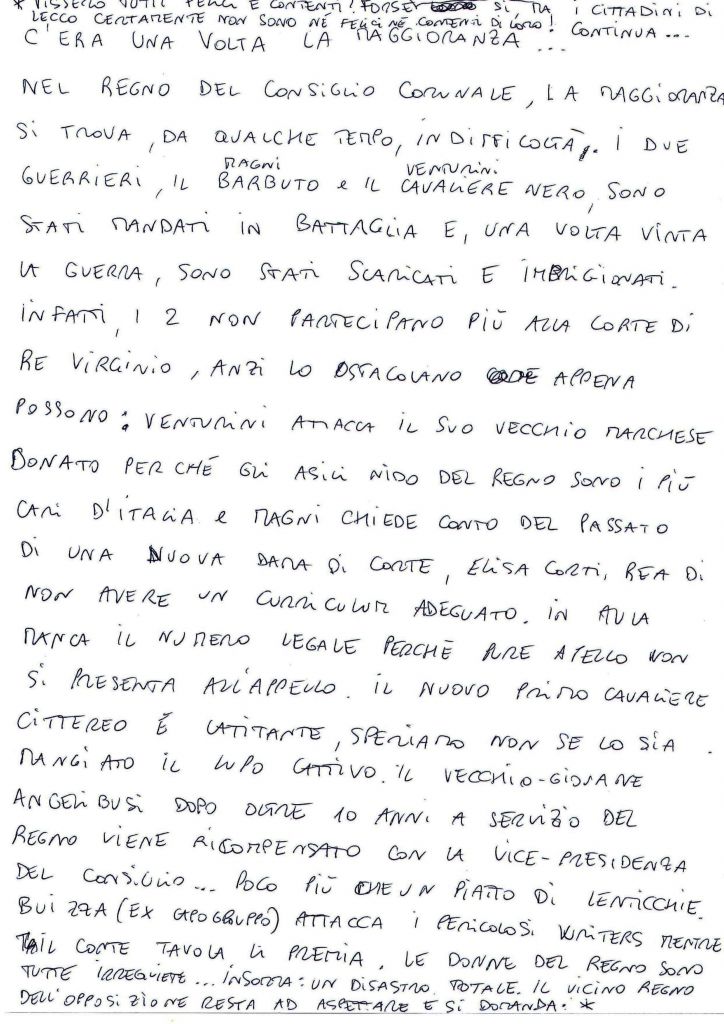 * VISSERO TUTTI FELICI E CONTENTI! FORSE SI MA I CITTADINI DI
LECCO CERTAMENTE NON SONO NÉ FELICI NÉ CONTENTI DI LORO! CONTINUA...
C'ERA UNA VOLTA LA MAGGIORANZA...
NEL REGNO DEL CONSIGLIO COMUNALE, LA MAGGIORANZA
SI TROVA, DA QUALCHE TEMPO, IN DIFFICOLTÀ. I DUE
MAGNI VENTURINI
GUERRIERI, IL BARBUTO e IL CAVALIERE NERO, SONO
STATI MANDATI IN BATTAGLIA E, UNA VOLTA VINTA
LA GUERRA, SONO STATI SCARICATI E IMPRIGIONATI.
INFATTI, I 2 NON PARTECIPANO PIÙ ALLA CORTE DI
RE VIRGINIO, ANZI LO OSTACOLANO APPENA
POSSONO: VENTURINI ATTACCA IL SUO VECCHIO MARCHESE
DONATO PERCHÉ GLI ASILI NIDO DEL REGNO SONO I PIÙ
CARI D'ITALIA e MAGNI CHIEDE CONTO DEL PASSATO
DI UNA NUOVA DAMA DI CORTE, ELISA CORTI, REA DI
NON AVERE UN CURRICULUM ADEGUATO. IN AULA
MANCA IL NUMERO LEGALE PERCHÈ PURE ATELLO NON
SI PRESENTA ALL'APPELLO. IL NUOVO PRIMO CAVALIERE
CITTEREO È LATITANTE, SPERIAMO NON SE LO SIA
MANGIATO IL LUPO CATTIVO. IL VECCHIO-GIOVANE
ANGELIBUSI DOPO OLTRE 10 ANNI A SERVIZIO DEL
REGNO VIENE RICOMPENSATO CON LA VICE-PRESIDENZA
DEL CONSIGLIO... POCO PIÙ CHE UN PIATTO DI LENTICCHIE.
BUIZZA (EX CAPOGRUPPO) ATTACCA I PERICOLOSI WRITERS MENTRE
IL CONTE TAVOLA LI PREMIA. LE DONNE DEL REGNO SONO
TUTTE IRREQUIETE... INSOMMA: UN DISASTRO TOTALE. IL VICINO REGNO
DELL'OPPOSIZIONE RESTA AD ASPETTARE E SI DOMANDA: *